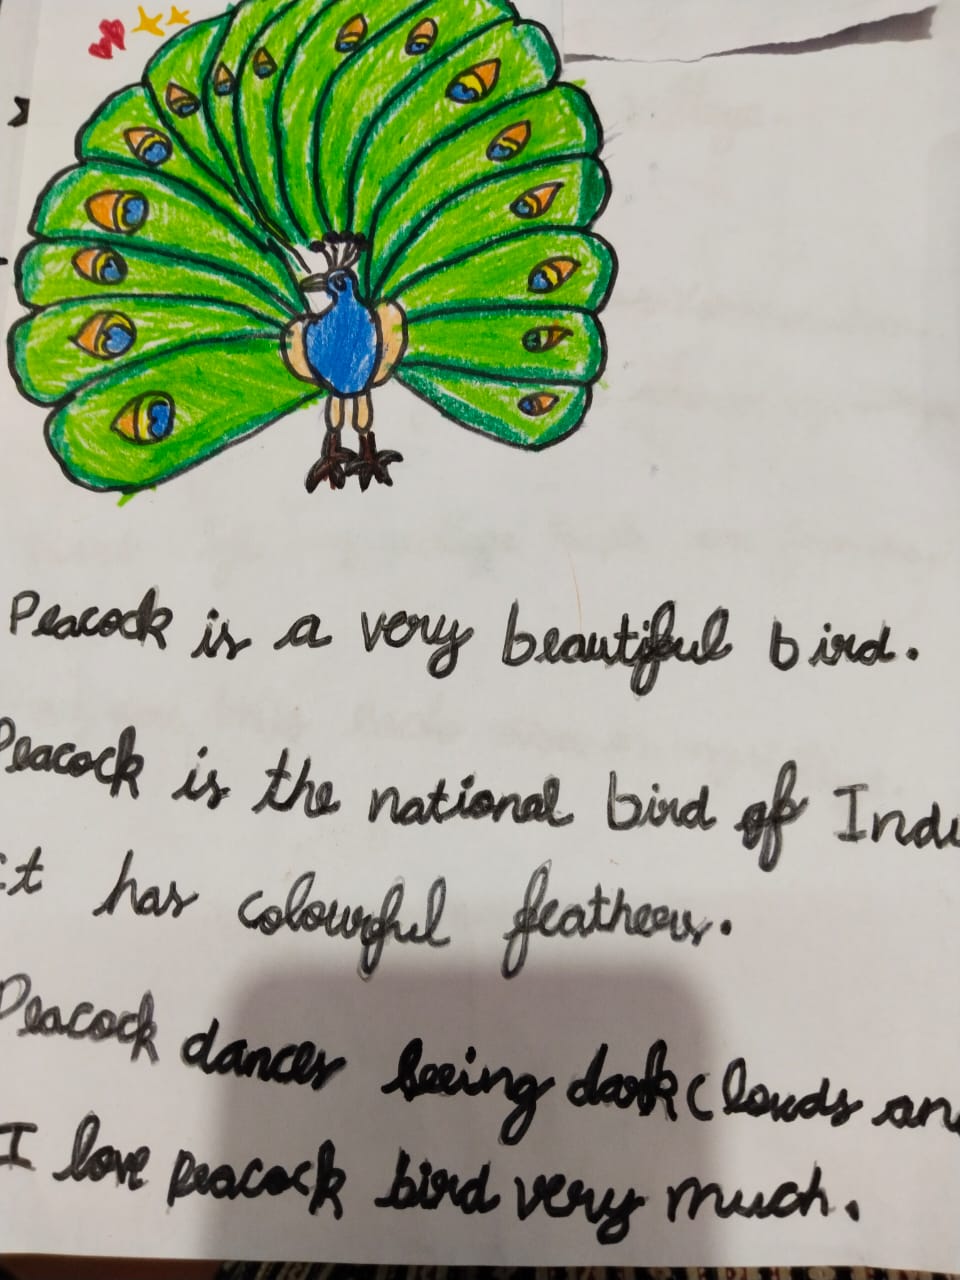 Peacock is a very beautiful bird.
Peacock is the national bird of Indi
it has colourful feathers.
Peacock dances seeing dark clouds an
I love peacock bird very much.